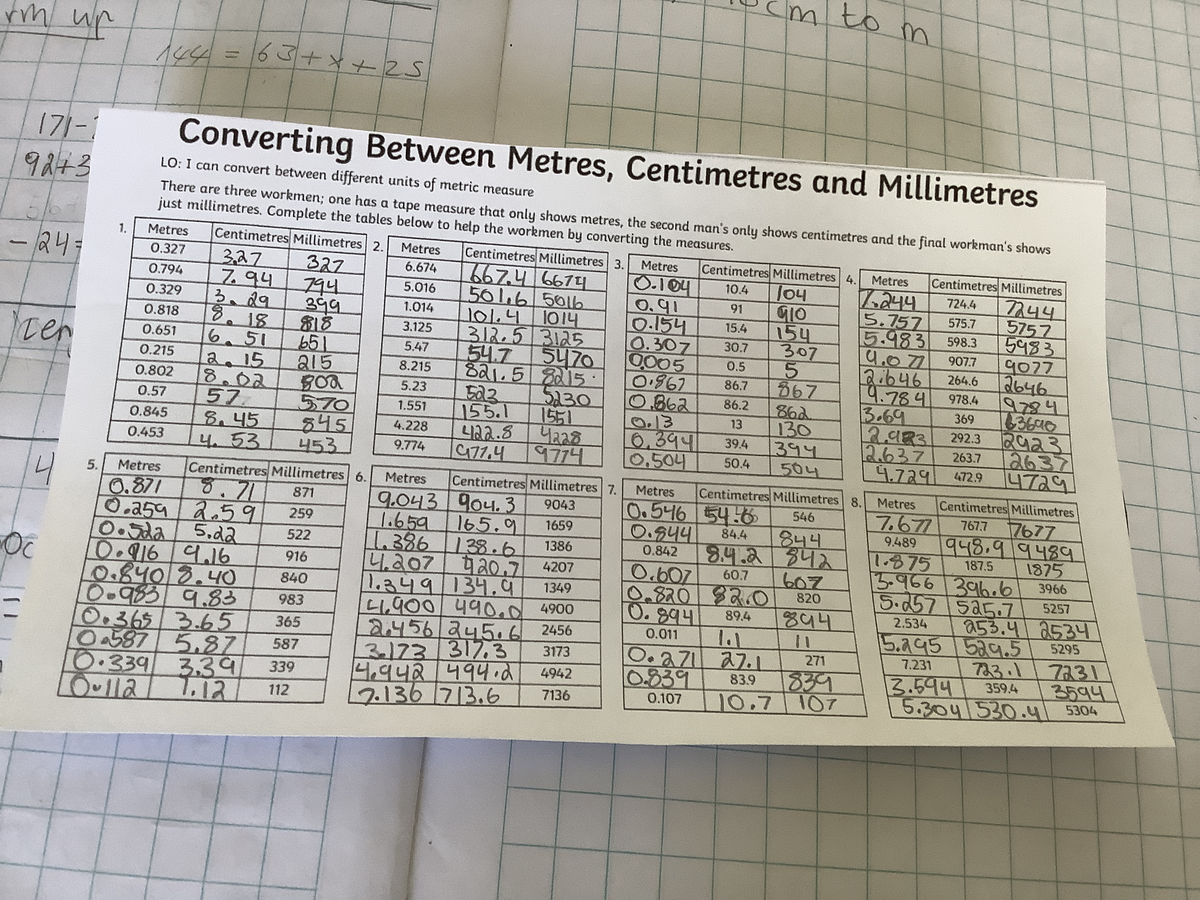 rm up
144 = 63 + x + 25
10cm to m
171-
92+3
- 24=
Converting Between Metres, Centimetres and Millimetres
LO: I can convert between different units of metric measure
There are three workmen; one has a tape measure that only shows metres, the second man's only shows centimetres and the final workman's shows
just millimetres. Complete the tables below to help the workmen by converting the measures.
1. Metres Centimetres Millimetres
0.327 3.27 327
0.794 7.94 794
0.329 3.29 399
0.818 8.18 818
0.651 6.51 651
0.215 2.15 215
0.802 8.02 802
0.57 57 570
0.845 8.45 845
0.453 4.53 453
2. Metres Centimetres Millimetres
6.674 667.4 6674
5.016 501.6 5016
1.014 101.4 1014
3.125 312.5 3125
5.47 54.7 5470
8.215 821.5 8215
5.23 523 5230
1.551 155.1 1551
4.228 422.8 4228
9.774 977.4 9774
3. Metres Centimetres Millimetres
0.104 10.4 104
0.91 91 910
0.154 15.4 154
0.307 30.7 307
0.005 0.5 5
0.867 86.7 867
0.862 86.2 862
0.13 13 130
0.394 39.4 394
0.504 50.4 504
4. Metres Centimetres Millimetres
7.244 724.4 7244
5.757 575.7 5757
5.983 598.3 5983
9.077 907.7 9077
2.646 264.6 2646
9.784 978.4 9784
3.69 369 3690
2.923 292.3 2923
2.637 263.7 2637
4.729 472.9 4729
5. Metres Centimetres Millimetres
0.871 8.71 871
0.259 2.59 259
0.522 5.22 522
0.916 9.16 916
0.840 8.40 840
0.983 9.83 983
0.365 3.65 365
0.587 5.87 587
0.339 3.39 339
0.112 1.12 112
6. Metres Centimetres Millimetres
9.043 904.3 9043
1.659 165.9 1659
1.386 138.6 1386
4.207 420.7 4207
1.349 134.9 1349
4.900 490.0 4900
2.456 245.6 2456
3.173 317.3 3173
4.942 494.2 4942
7.136 713.6 7136
7. Metres Centimetres Millimetres
0.546 54.6 546
0.844 84.4 844
0.842 84.2 842
0.607 60.7 607
0.820 82.0 820
0.894 89.4 894
0.011 1.1 11
0.271 27.1 271
0.839 83.9 839
0.107 10.7 107
8. Metres Centimetres Millimetres
7.677 767.7 7677
9.489 948.9 9489
1.875 187.5 1875
3.966 396.6 3966
5.257 525.7 5257
2.534 253.4 2534
5.295 529.5 5295
7.231 723.1 7231
3.594 359.4 3594
5.304 530.4 5304